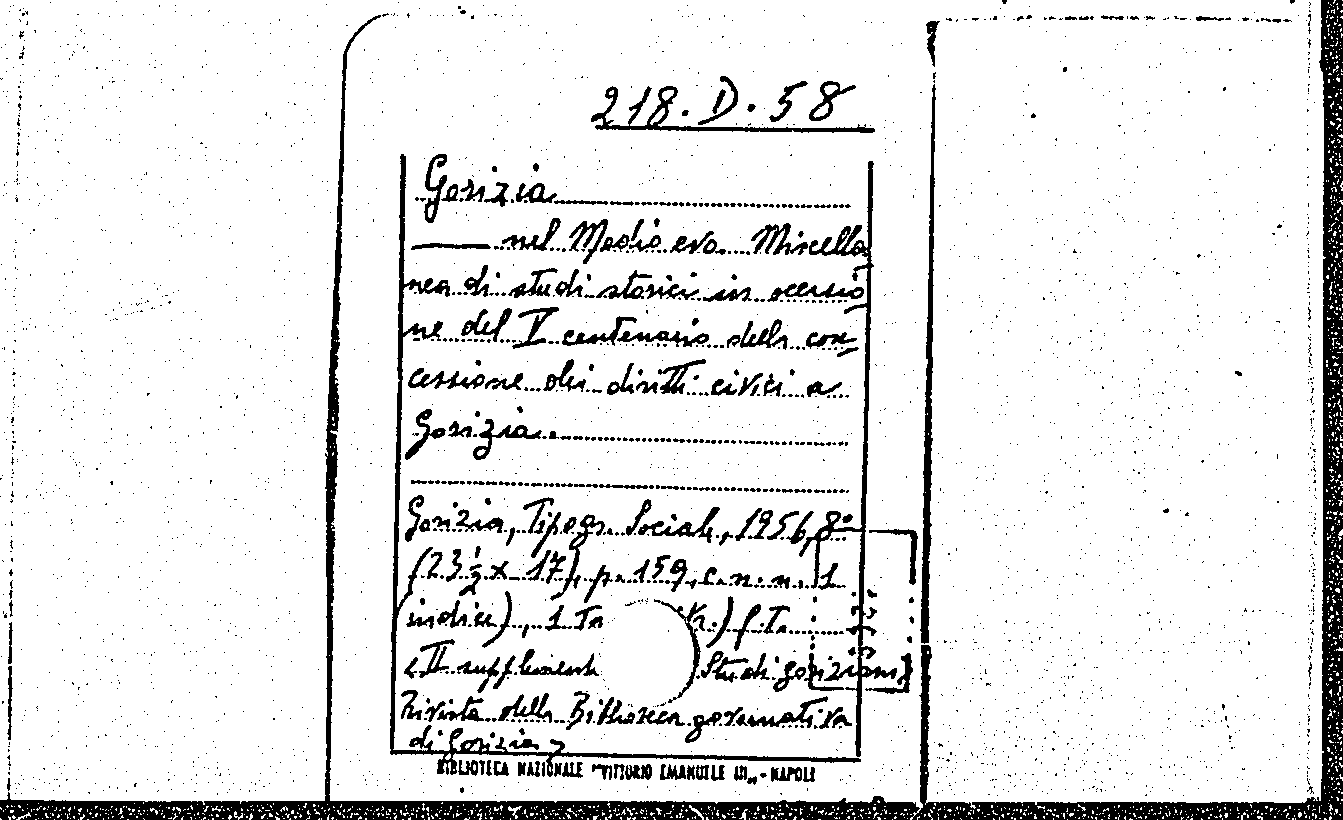 218.D.58
Gorizia
—— nel Medio evo. Miscella=
nea di studi storici in occasio=
ne del V centenario della con=
cessione dei diritti civici a
Gorizia.
Gorizia, Tipogr. Sociale, 1956, 8°
(23 ½ x 17), p. 159, c. n. n. 1
(indice), 1 Ta r.) f. T.
«II supplement Studi goriziani,
Rivista della Biblioteca governativa
di Gorizia»
BIBLIOTECA NAZIONALE "VITTORIO EMANUELE III„ - NAPOLI